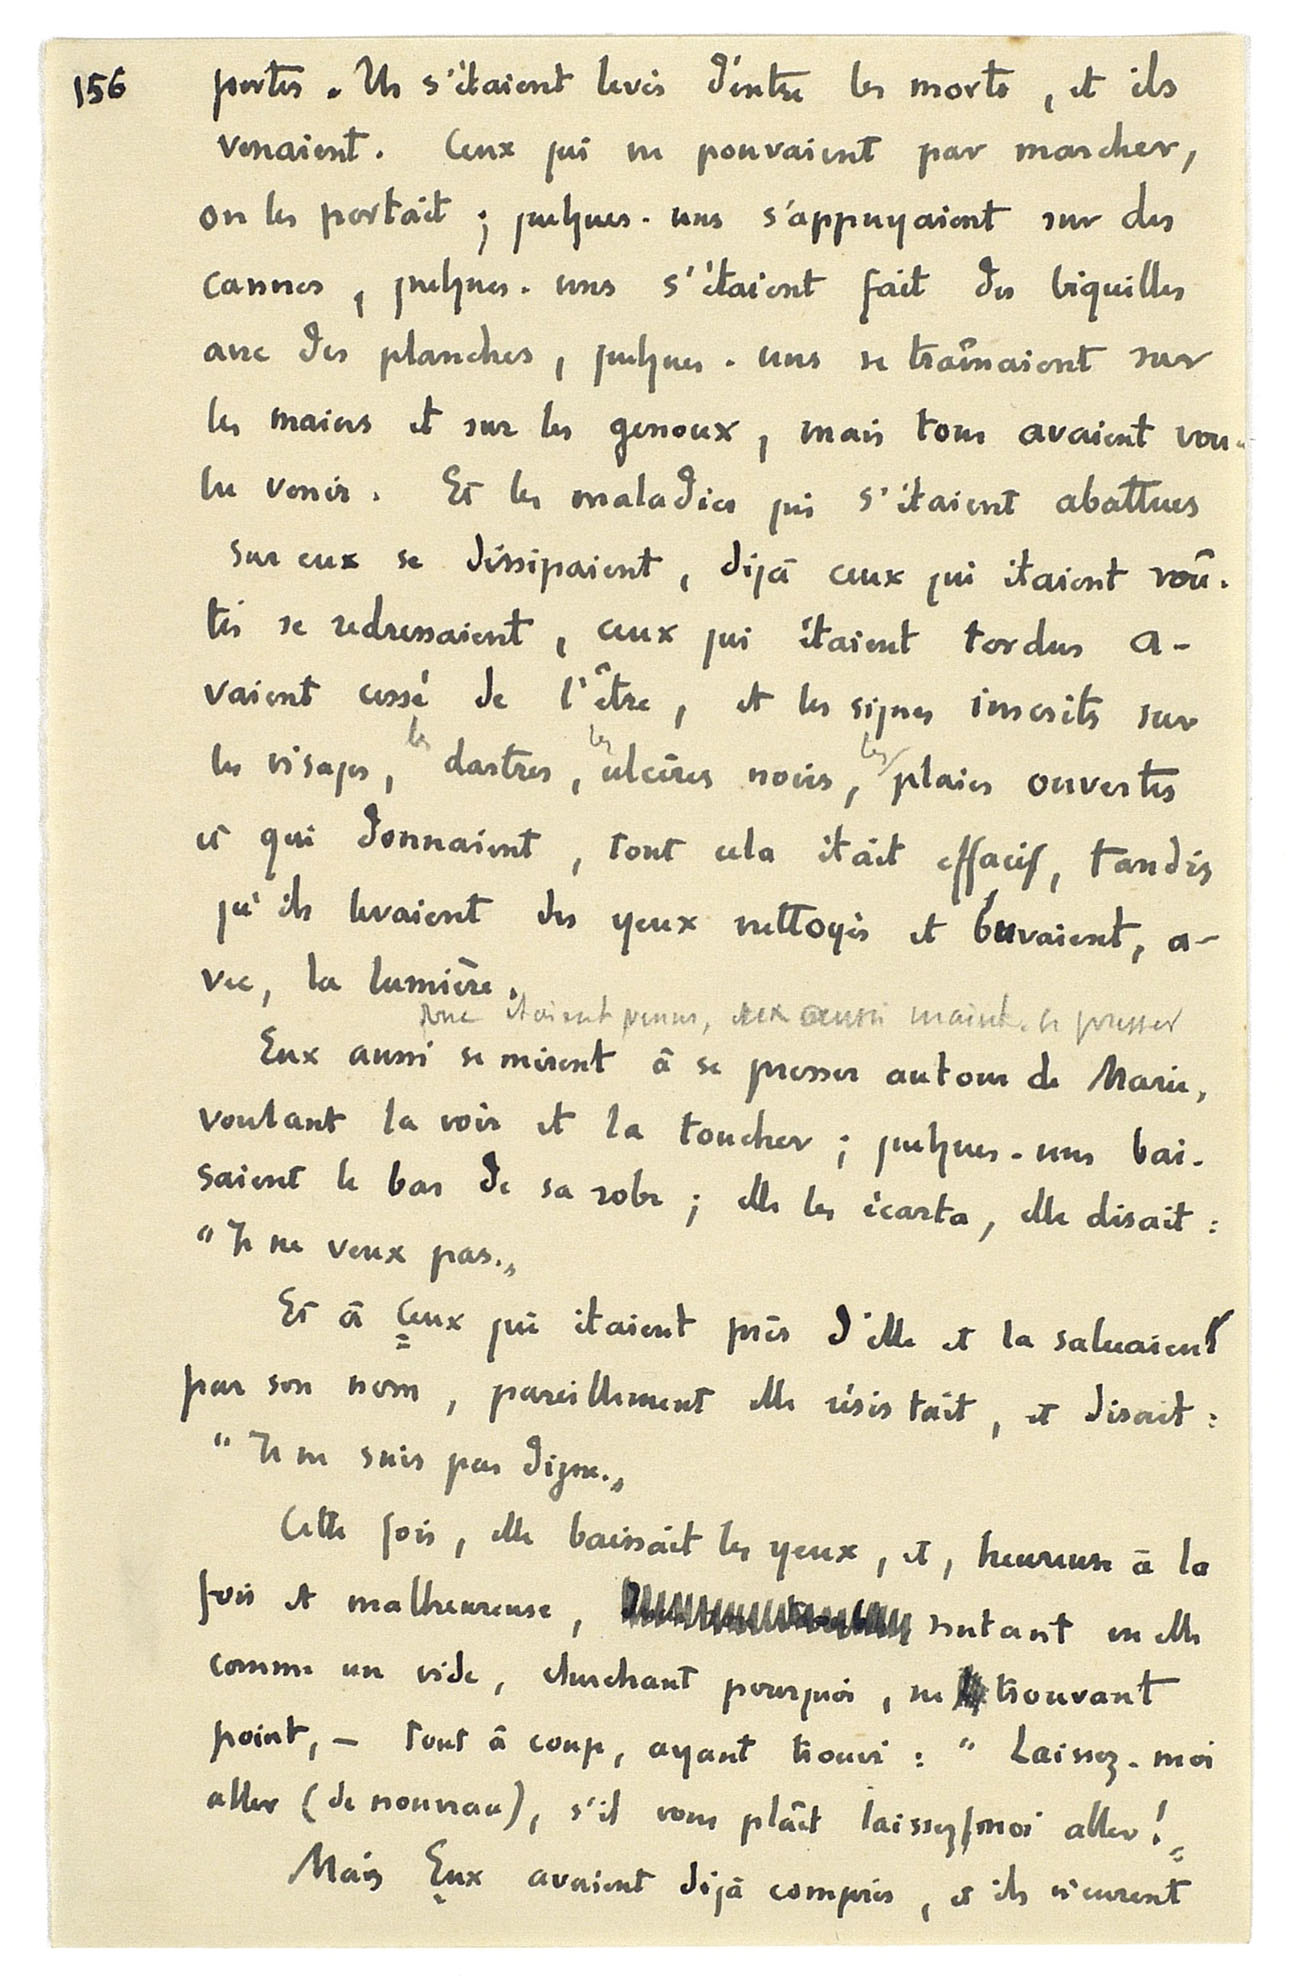 156
portes. Ils s'étaient levés d'entre les morts, et ils
venaient. Ceux qui ne pouvaient pas marcher,
on les portait ; quelques-uns s'appuyaient sur des
cannes, quelques-uns s'étaient fait des béquilles
avec des planches, quelques-uns se traînaient sur
les mains et sur les genoux, mais tous avaient vou-
lu venir. Et les maladies qui s'étaient abattues
sur eux se dissipaient, déjà ceux qui étaient voû-
tés se redressaient, ceux qui étaient tordus a-
vaient cessé de l'être, et les signes inscrits sur
les visages, les dartres, les ulcères noirs, les plaies ouvertes
et qui donnaient, tout cela était effacé, tandis
qu'ils levaient des yeux nettoyés et buvaient, a-
vec, la lumière.
étaient venus, eux aussi maint. se presser
Eux aussi se mirent à se presser autour de Marie,
voulant la voir et la toucher ; quelques-uns bai-
saient le bas de sa robe ; elle les écarta, elle disait :
"Je ne veux pas."
Et à Ceux qui étaient près d'elle et la saluaient
par son nom, pareillement elle résistait, et disait :
"Je ne suis pas digne."
Cette fois, elle baissait les yeux, et, heureuse à la
fois et malheureuse, sentant en elle
comme un vide, cherchant pourquoi, ne trouvant
point, — tout à coup, ayant trouvé : "Laissez-moi
aller (de nouveau), s'il vous plaît laissez/moi aller !"
Mais Eux avaient déjà compris, et ils n'eurent